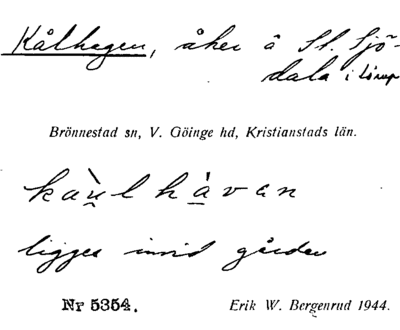 Kålhagen, åker å St. Sjö-
dala i Lörup
Brönnestad sn, V. Göinge hd, Kristianstads län.
kàu̯lhà̠van
ligger invid gården
Nr 5354. Erik W. Bergenrud 1944.